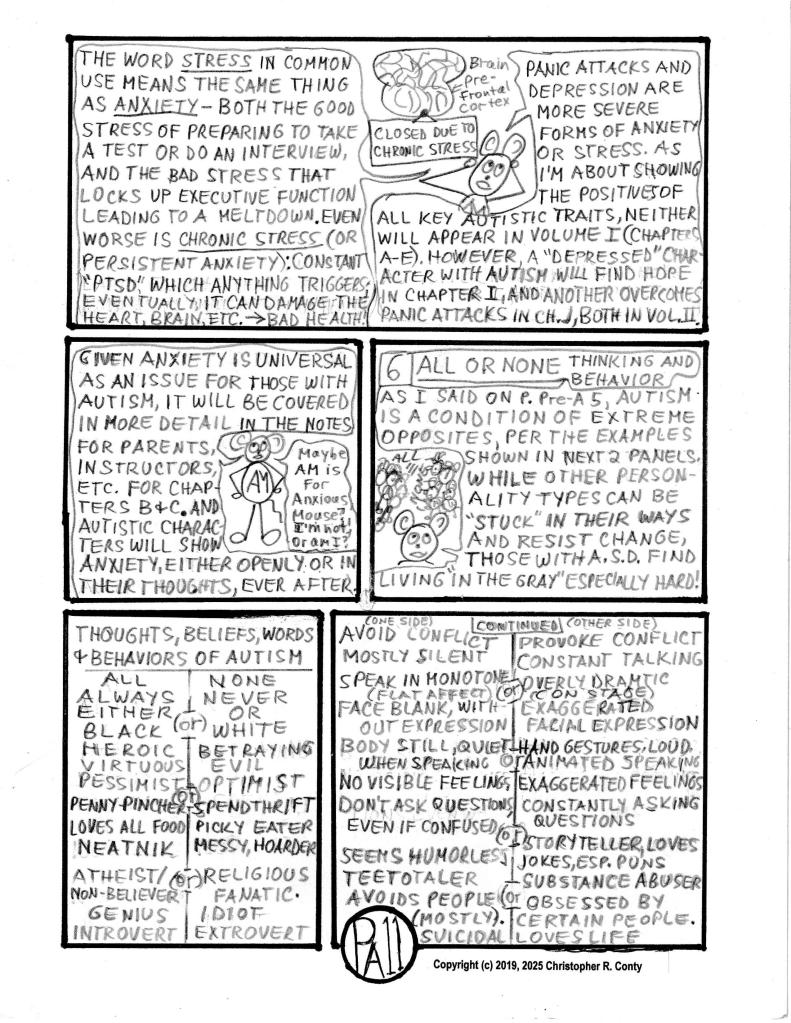 THE WORD STRESS IN COMMON
USE MEANS THE SAME THING
AS ANXIETY - BOTH THE GOOD
STRESS OF PREPARING TO TAKE
A TEST OR DO AN INTERVIEW,
AND THE BAD STRESS THAT
LOCKS UP EXECUTIVE FUNCTION
LEADING TO A MELTDOWN. EVEN
WORSE IS CHRONIC STRESS (OR
PERSISTENT ANXIETY): CONSTANT
"PTSD" WHICH ANYTHING TRIGGERS.
EVENTUALLY, IT CAN DAMAGE THE
HEART, BRAIN, ETC. → BAD HEALTH!
Brain
Pre-
Frontal
Cortex
CLOSED DUE TO
CHRONIC STRESS
PANIC ATTACKS AND
DEPRESSION ARE
MORE SEVERE
FORMS OF ANXIETY
OR STRESS. AS
I'M ABOUT SHOWING
THE POSITIVES OF
ALL KEY AUTISTIC TRAITS, NEITHER
WILL APPEAR IN VOLUME I (CHAPTERS
A-E). HOWEVER, A "DEPRESSED" CHAR-
ACTER WITH AUTISM WILL FIND HOPE
IN CHAPTER I, AND ANOTHER OVERCOMES
PANIC ATTACKS IN CH. J, BOTH IN VOL. II.
GIVEN ANXIETY IS UNIVERSAL
AS AN ISSUE FOR THOSE WITH
AUTISM, IT WILL BE COVERED
IN MORE DETAIL IN THE NOTES
FOR PARENTS,
INSTRUCTORS,
ETC. FOR CHAP-
TERS B+C. AND
AUTISTIC CHARAC-
TERS WILL SHOW
ANXIETY, EITHER OPENLY OR IN
THEIR THOUGHTS, EVER AFTER.
AM
Maybe
AM is
for
Anxious
Mouse?
I'm not!
Or am I?
6 ALL OR NONE THINKING AND
BEHAVIOR
AS I SAID ON P. Pre-A 5, AUTISM
IS A CONDITION OF EXTREME
OPPOSITES, PER THE EXAMPLES
SHOWN IN NEXT 2 PANELS.
WHILE OTHER PERSON-
ALITY TYPES CAN BE
"STUCK" IN THEIR WAYS
AND RESIST CHANGE,
THOSE WITH A.S.D. FIND
LIVING "IN THE GRAY" ESPECIALLY HARD!
ALL
THOUGHTS, BELIEFS, WORDS
+ BEHAVIORS OF AUTISM
ALL NONE
ALWAYS NEVER
EITHER OR
BLACK (or) WHITE
HEROIC BETRAYING
VIRTUOUS EVIL
PESSIMIST OPTIMIST
or
PENNY-PINCHER SPENDTHRIFT
LOVES ALL FOOD PICKY EATER
NEATNIK MESSY, HOARDER
ATHEIST/ (or) RELIGIOUS
NON-BELIEVER FANATIC.
GENIUS IDIOT
INTROVERT EXTROVERT
(ONE SIDE) CONTINUED (OTHER SIDE)
AVOID CONFLICT PROVOKE CONFLICT
MOSTLY SILENT CONSTANT TALKING
SPEAK IN MONOTONE OVERLY DRAMTIC
(FLAT AFFECT) (or) (ON STAGE)
FACE BLANK, WITH- EXAGGERATED
OUT EXPRESSION FACIAL EXPRESSION
BODY STILL, QUIET HAND GESTURES, LOUD,
WHEN SPEAKING or ANIMATED SPEAKING
NO VISIBLE FEELINGS EXAGGERATED FEELINGS
DON'T ASK QUESTIONS CONSTANTLY ASKING
EVEN IF CONFUSED QUESTIONS
or STORYTELLER, LOVES
SEEMS HUMORLESS JOKES, ESP. PUNS
TEETOTALER SUBSTANCE ABUSER
AVOIDS PEOPLE (or OBSESSED BY
(MOSTLY). CERTAIN PEOPLE.
SUICIDAL LOVES LIFE
PA11
Copyright (c) 2019, 2025 Christopher R. Conty